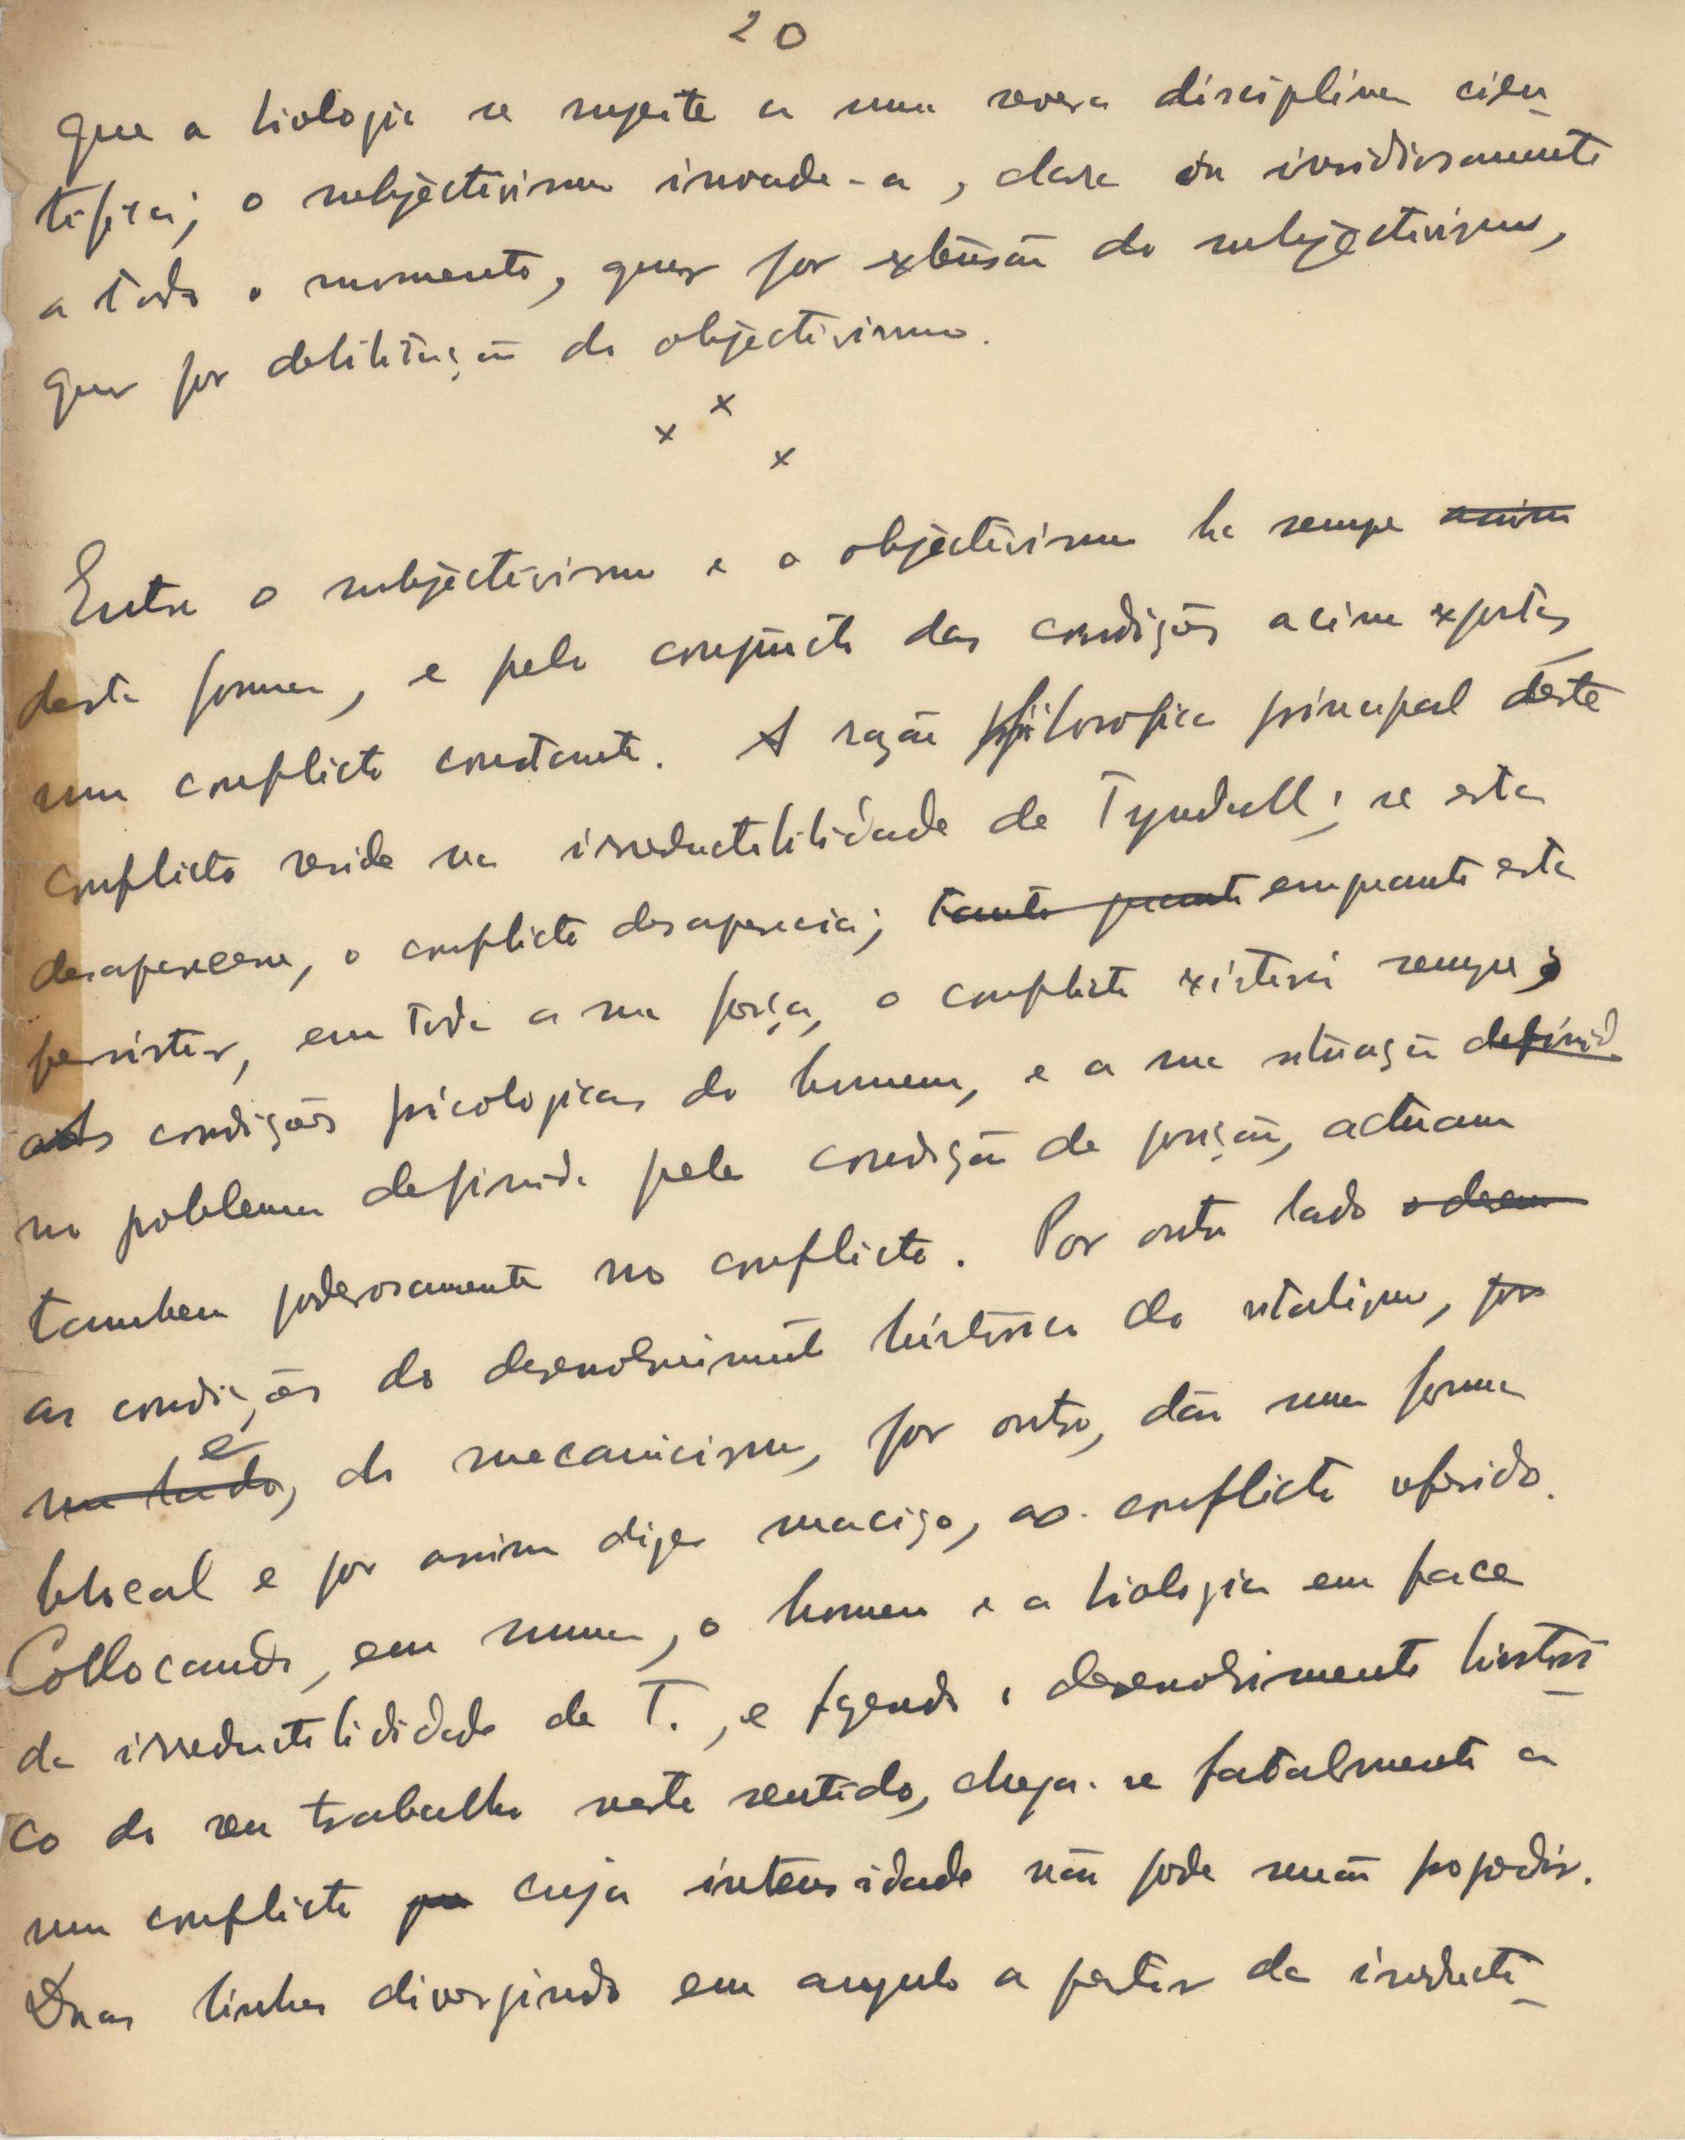 20
que a biologia se sujeite a uma severa disciplina cien-
tifica; o subjectivismo invade-a, clara ou insidiosamente
a todo o momento, quer por extensão do subjectivismo,
quer por debilitação do objectivismo.
x x x
Entre o subjectivismo e o objectivismo ha sempre assim
desta forma, e pelo conjuncto das condições acima expostas,
um conflicto constante. A razão filosofica principal deste
conflicto reside na irreductibilidade de Tyndall; se esta
desaparecesse, o conflicto desapareceria; tanto quanto emquanto esta
persistir, em toda a sua força, o conflicto existirá sempre;
as condições psicologicas do homem, e a sua situação definid
no problema definida pela condição de posição, actuam
tambem poderosamente no conflicto. Por outro lado o desen
as condições do desenvolvimento historico do vitalismo, por
um lado, e do mecanicismo, por outro, dão uma forma
blocal e por assim dizer maciça, ao conflicto referido.
Collocando, em suma, o homem e a biologia em face
da irreductibilidade de T., e fazendo o desenvolvimento histori-
co do seu trabalho neste sentido, chega-se fatalmente a
um conflicto cuja intensidade não pode senão progredir.
Duas linhas divergindo em angulo a partir da irreducti-